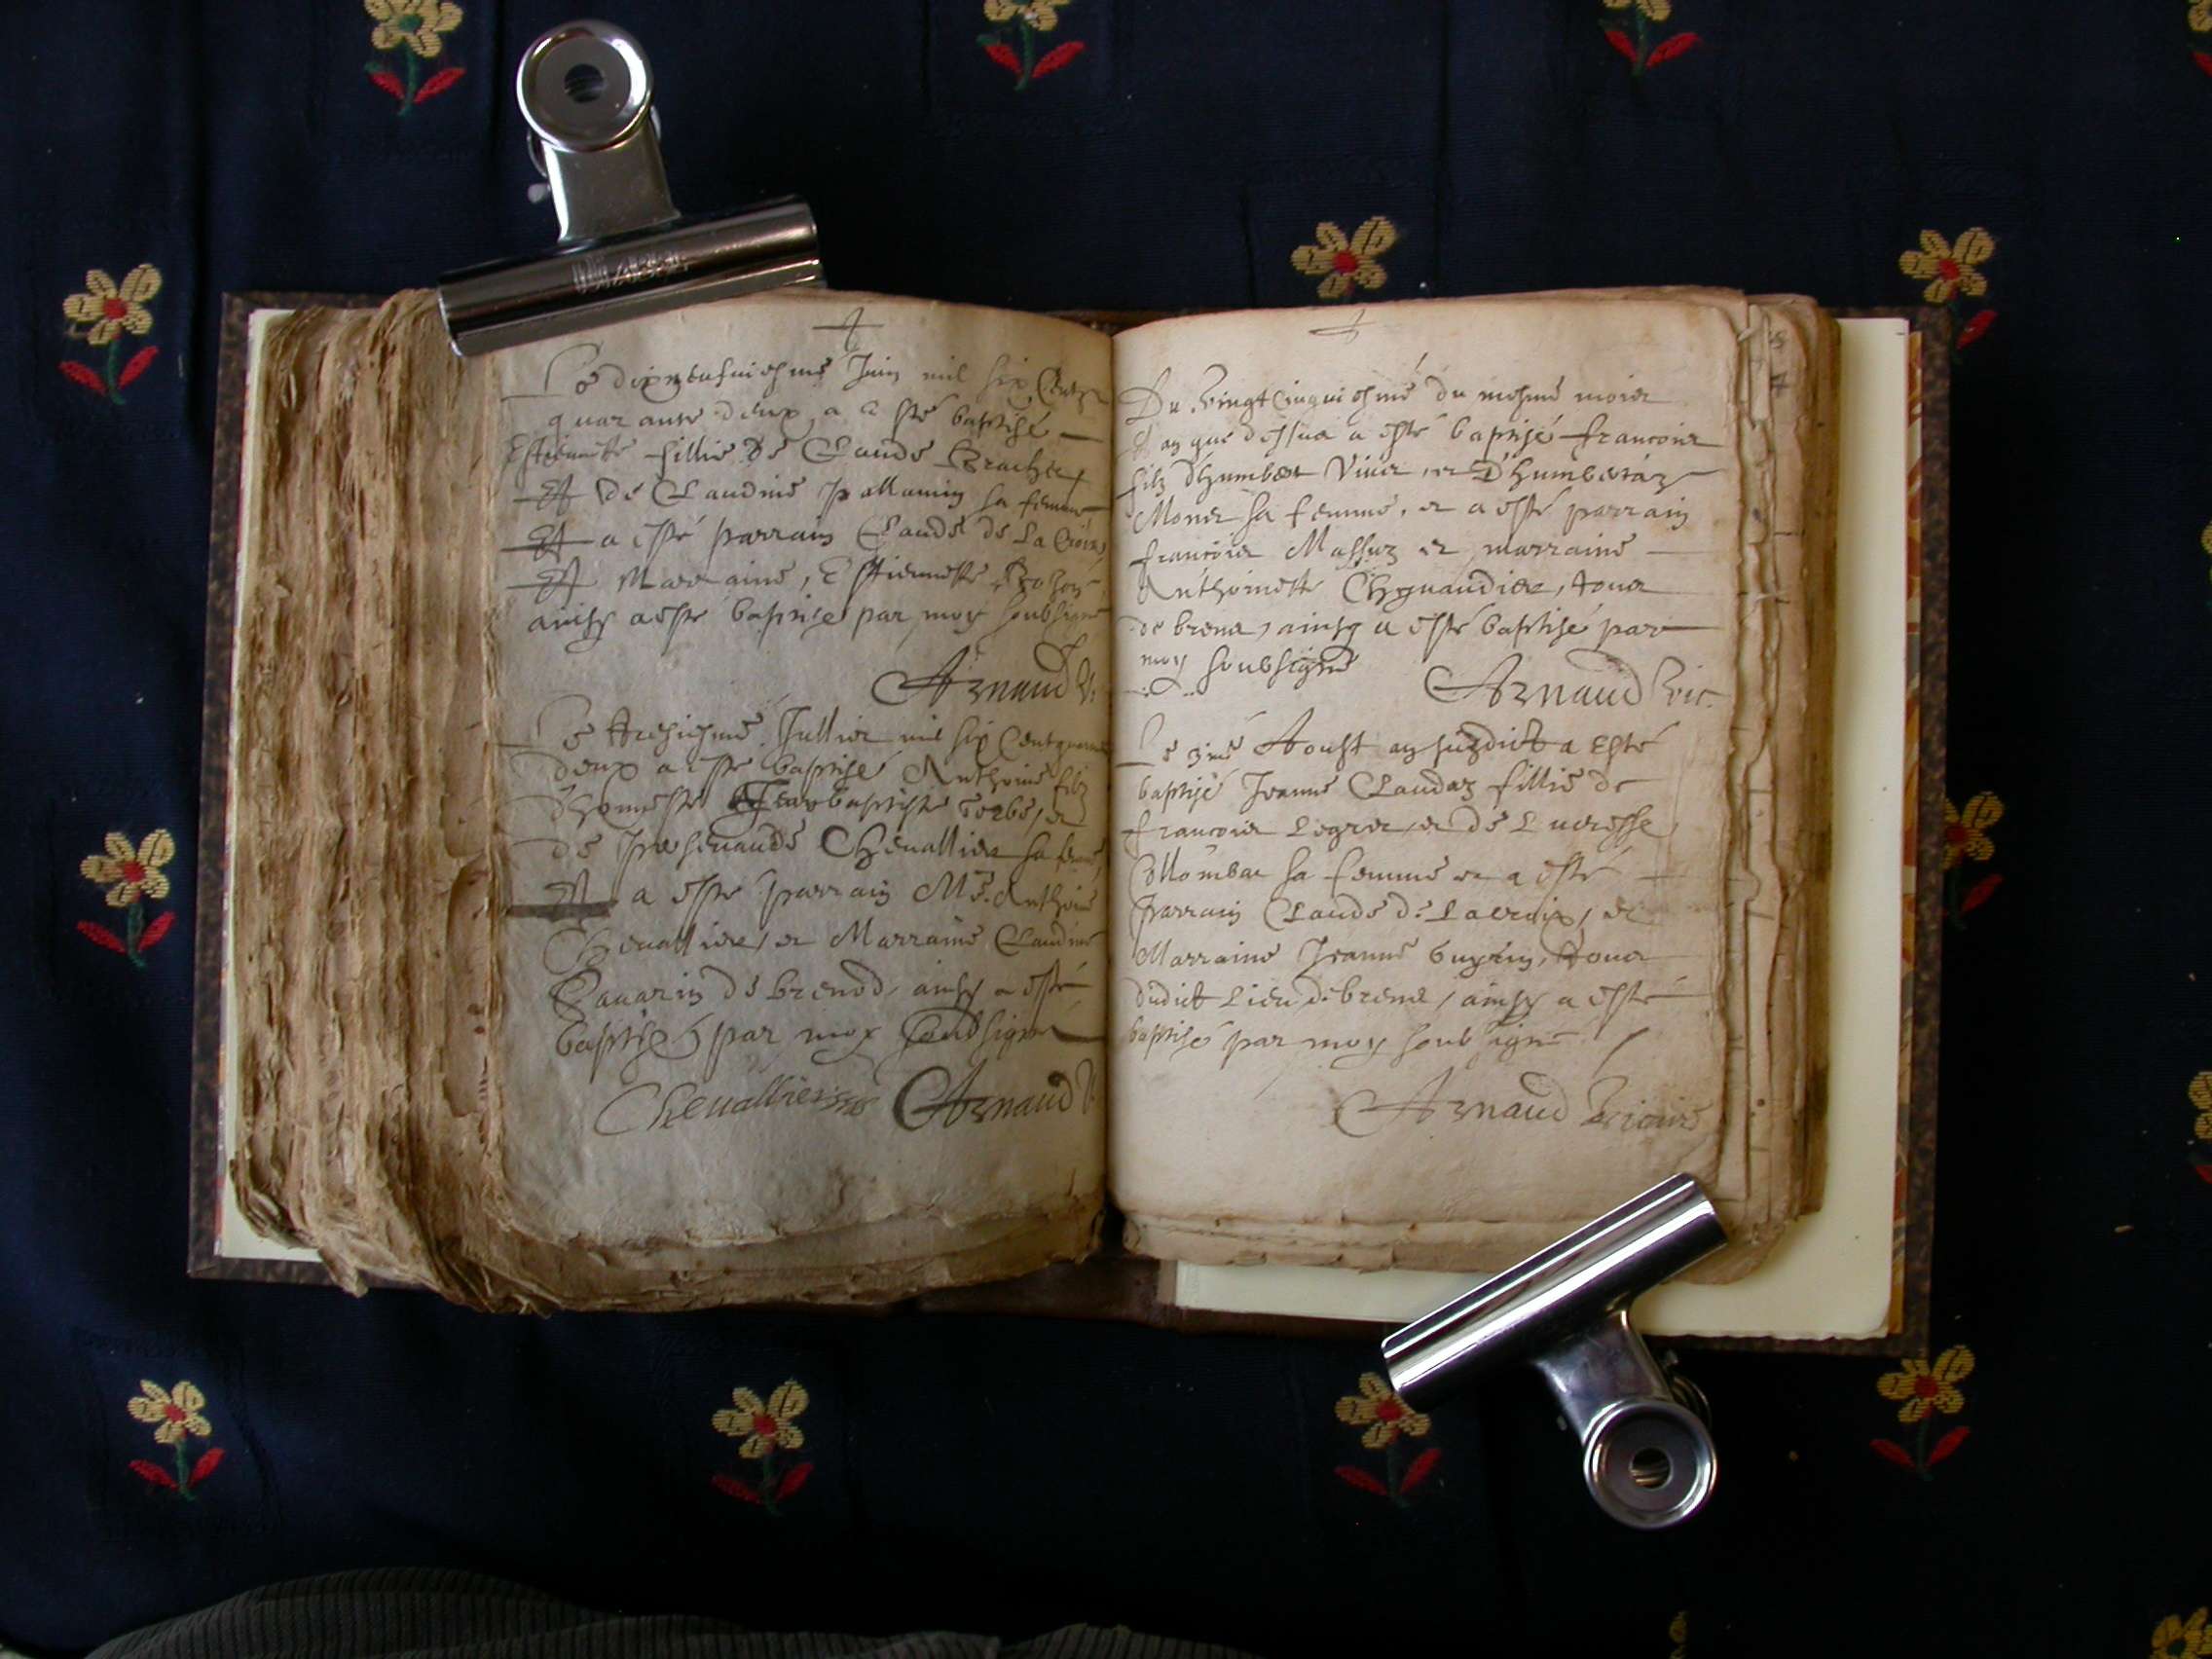 Le dixneufuiesme Juin mil six Centz
quarante deux a esté baptisé
Estiennette fillie de Claude Brachet
Et de Claudine Pallamin sa femme
Et a esté parrain Claude de La Croix
Et Marraine, Estiennette
ainsy a esté baptisé par moy soubsigné
Arnaud V.
Le tresiesme Jullier mil six Cent quarante
deux a esté baptisé Anthoine filz
d'honneste Jean baptiste et
de Chevallier sa femme
Et a esté parrain Me. Anthoine
Chevallier, et Marraine Claudine
Sauarin de brenod, ainsy a esté
baptisé par moy soubsigné
Chevallier Arnaud V.
Du Vingt Cinquiesme du mesme mois
et an que dessus a esté baptisé francois
filz d'humbert et d'humbertaz
Monet sa femme, et a esté parrain
francois et marraine
Anthoinette tous
de brena, ainsy a esté baptisé par
moy soubsigné
Arnaud Vic.
Le 3me Aoust an susdict a Esté
baptisé Jeanne Claudaz fillie de
francois Legret, et de Lucresse
Collombat sa femme et a esté
parrain Claude de Lacroix, et
Marraine Jeanne tous
dudict Lieu de brena, ainsy a esté
baptisé par moy soubsigné
Arnaud Vicaire